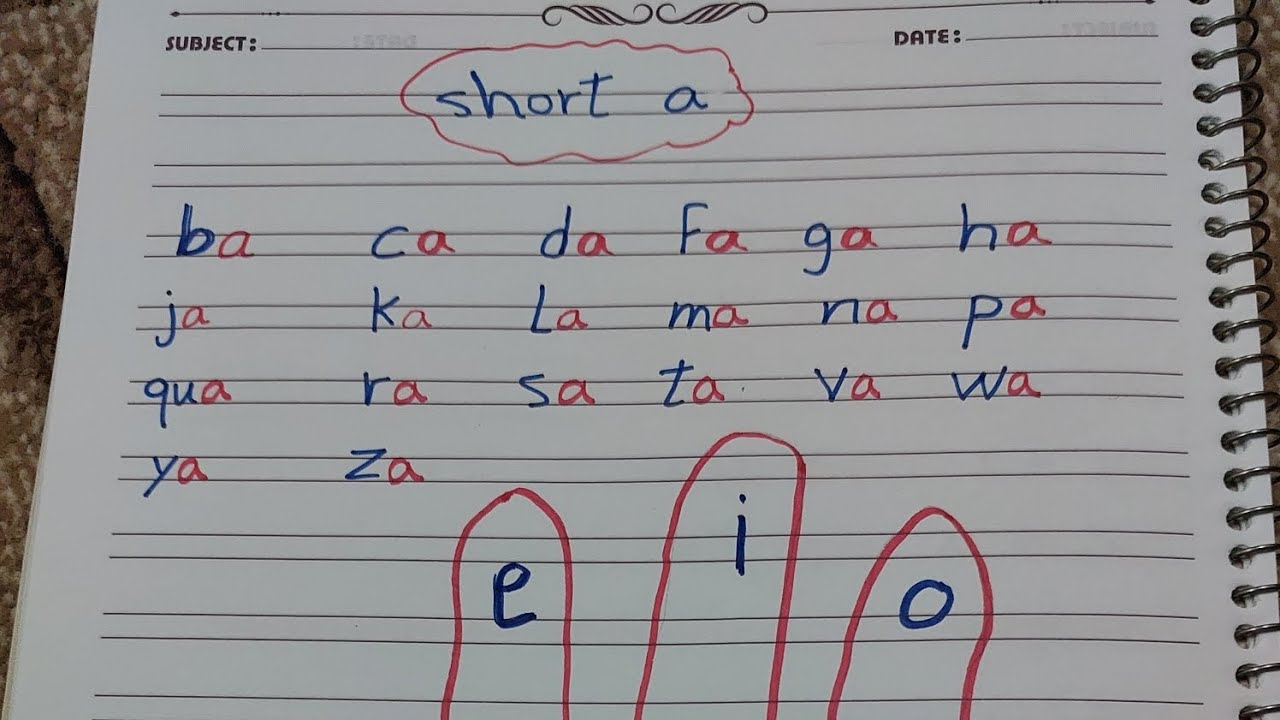 SUBJECT: DATE:
short a
ba ca da Fa ga ha
ja ka La ma na pa
qua ra sa ta va wa
ya za
e i o